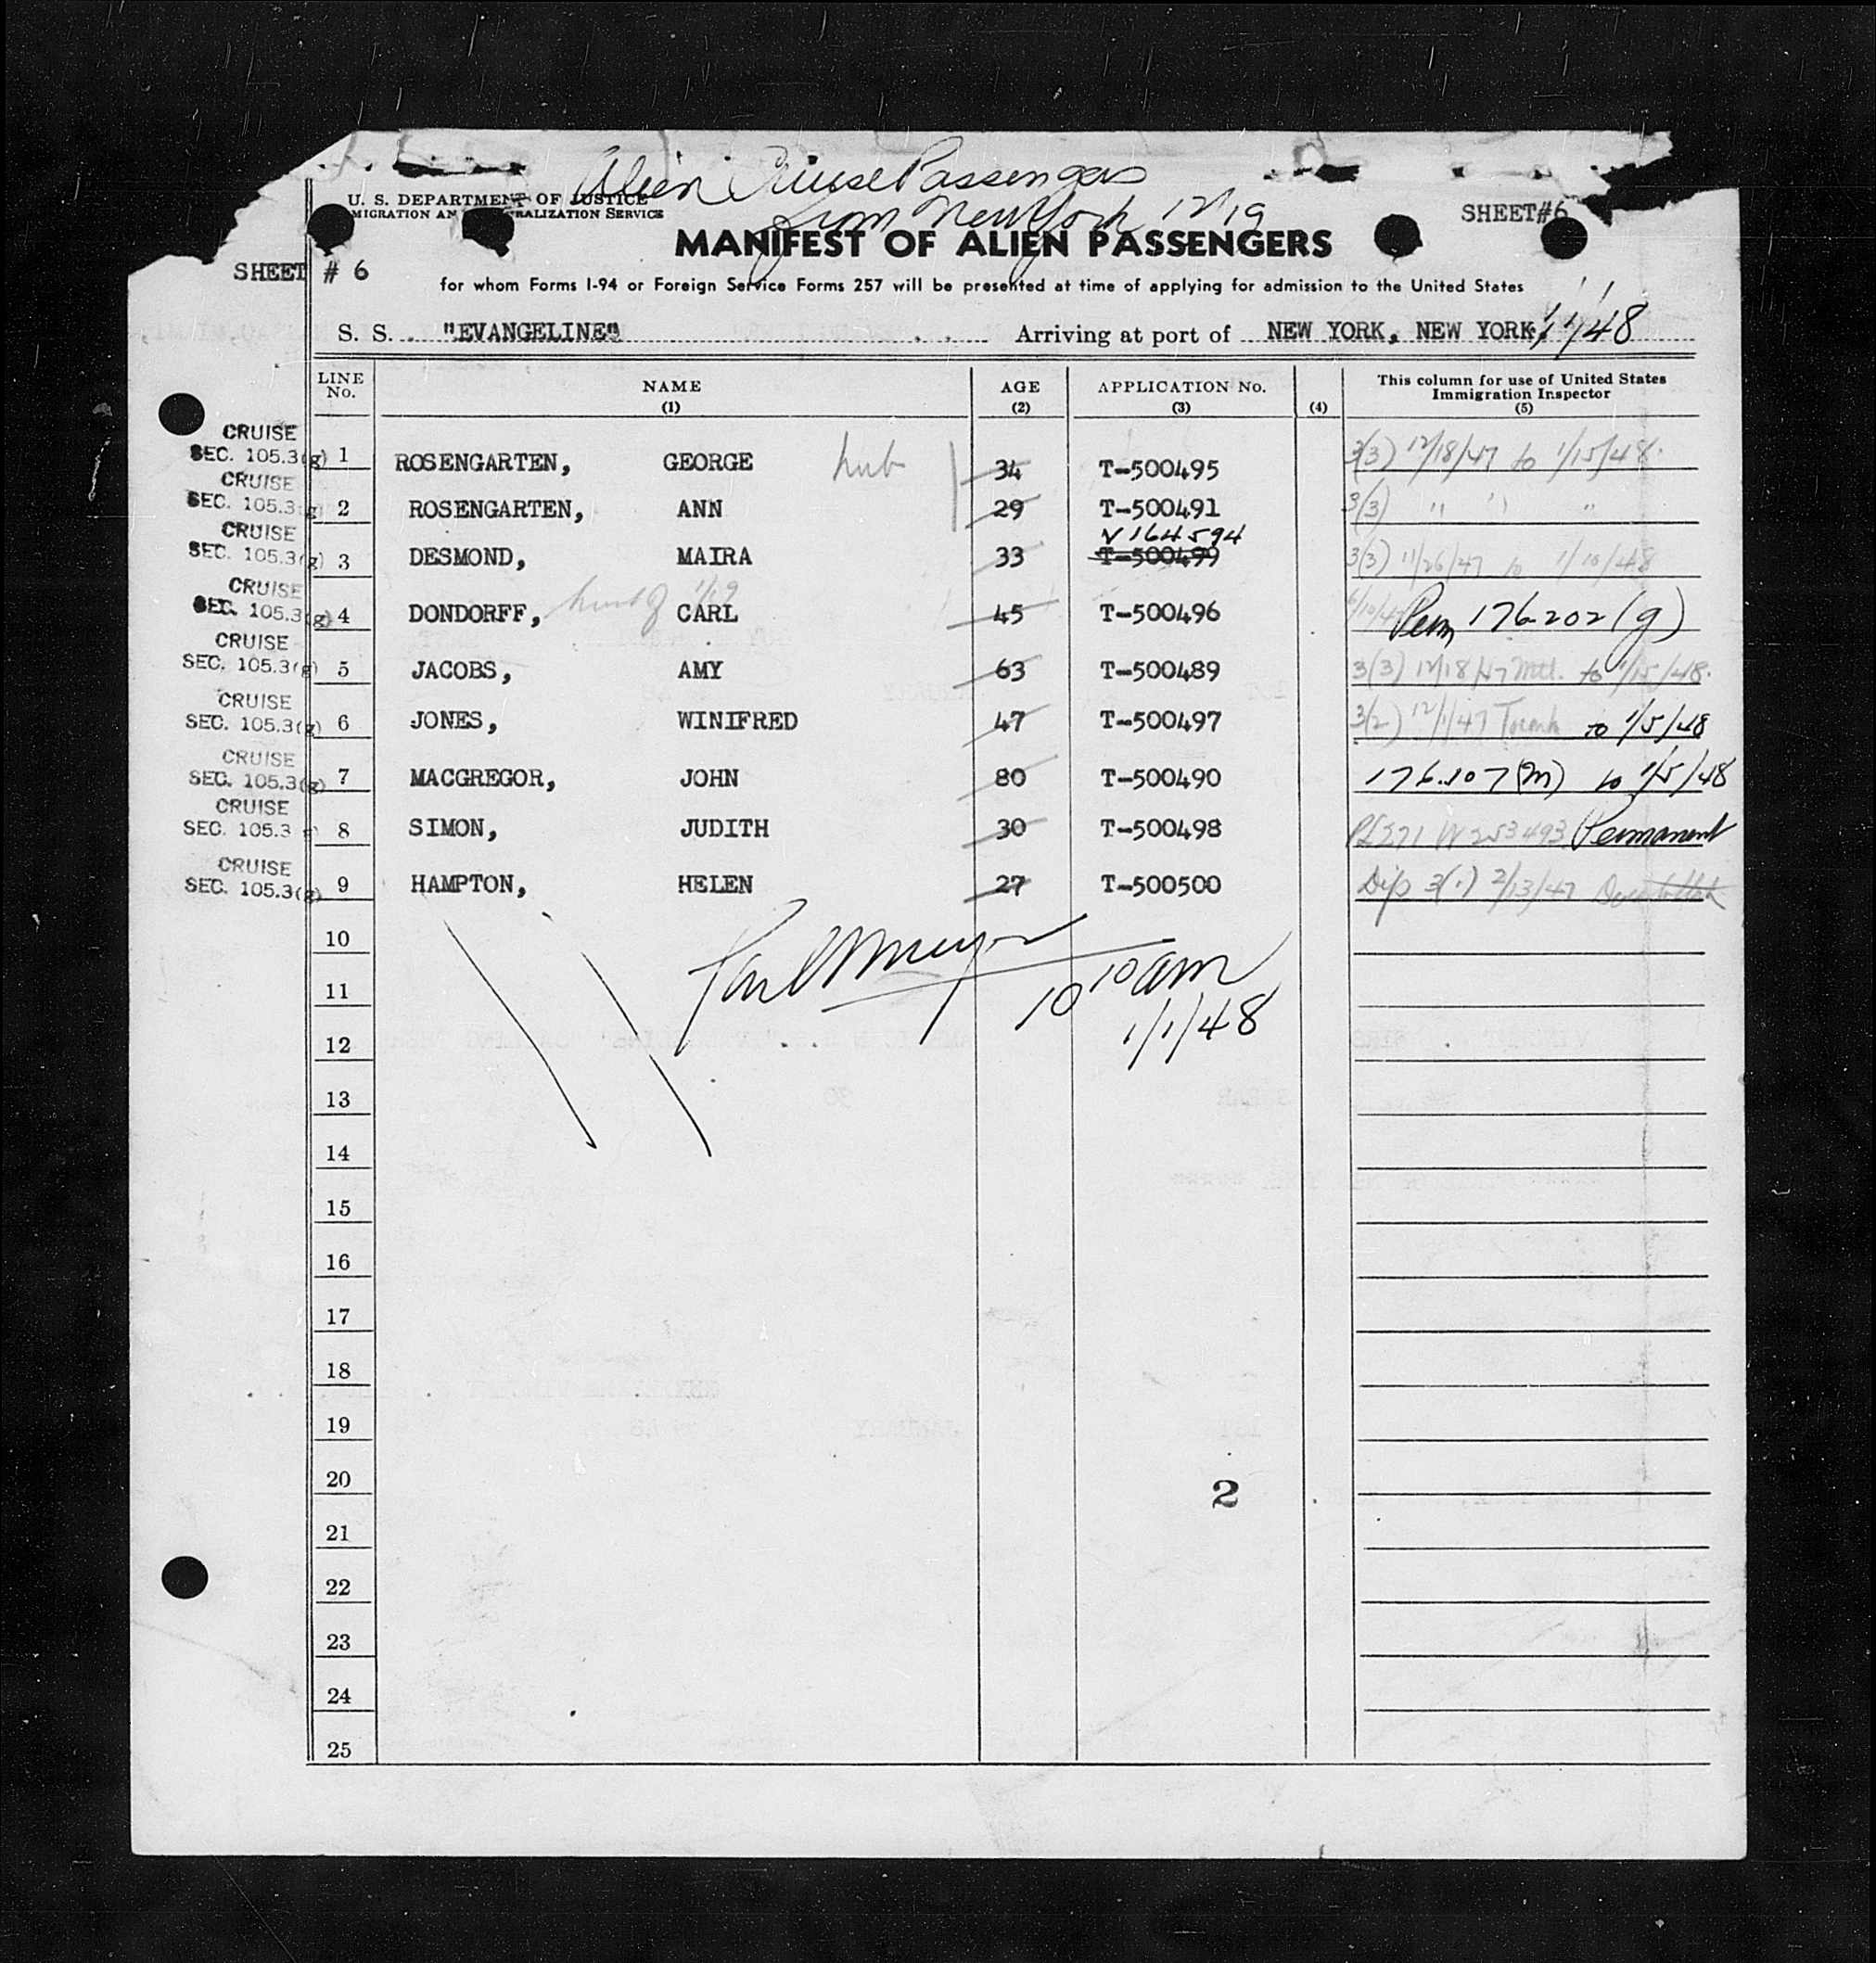 Alien Cruise Passengers
from New York 12/19
U. S. DEPARTMENT OF JUSTICE
MIGRATION AN RALIZATION SERVICE
SHEET#6
MANIFEST OF ALIEN PASSENGERS
SHEET # 6
for whom Forms I-94 or Foreign Service Forms 257 will be presented at time of applying for admission to the United States
S. S. "EVANGELINE" Arriving at port of NEW YORK, NEW YORK, 1/1/48
LINE No. NAME (1) AGE (2) APPLICATION No. (3) (4) This column for use of United States Immigration Inspector (5)
CRUISE
SEC. 105.3(g) 1 ROSENGARTEN, GEORGE hub 34 T-500495 3(3) 12/18/47 to 1/15/48.
CRUISE
SEC. 105.3(g) 2 ROSENGARTEN, ANN 29 T-500491 3(3) " " "
CRUISE V164594
SEC. 105.3(g) 3 DESMOND, MAIRA 33 T-500499 3(3) 11/26/47 to 1/10/48
CRUISE
SEC. 105.3(g) 4 DONDORFF, CARL 45 T-500496 Perm 176.202(g)
CRUISE
SEC. 105.3(g) 5 JACOBS, AMY 63 T-500489 3(3) 12/18/47 Mtl. to 1/15/48.
CRUISE
SEC. 105.3(g) 6 JONES, WINIFRED 47 T-500497 3(2) 12/1/47 to 1/5/48
CRUISE
SEC. 105.3(g) 7 MACGREGOR, JOHN 80 T-500490 176.107(m) to 1/5/48
CRUISE
SEC. 105.3 8 SIMON, JUDITH 30 T-500498 Permanent
CRUISE
SEC. 105.3(g) 9 HAMPTON, HELEN 27 T-500500 Dip 3(1) 2/13/47
10
11 10 10 am
12 1/1/48
13
14
15
16
17
18
19
20 2
21
22
23
24
25